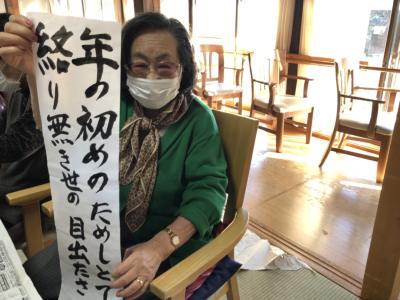 年の初めのためしとて
終り無き世の目出たさ